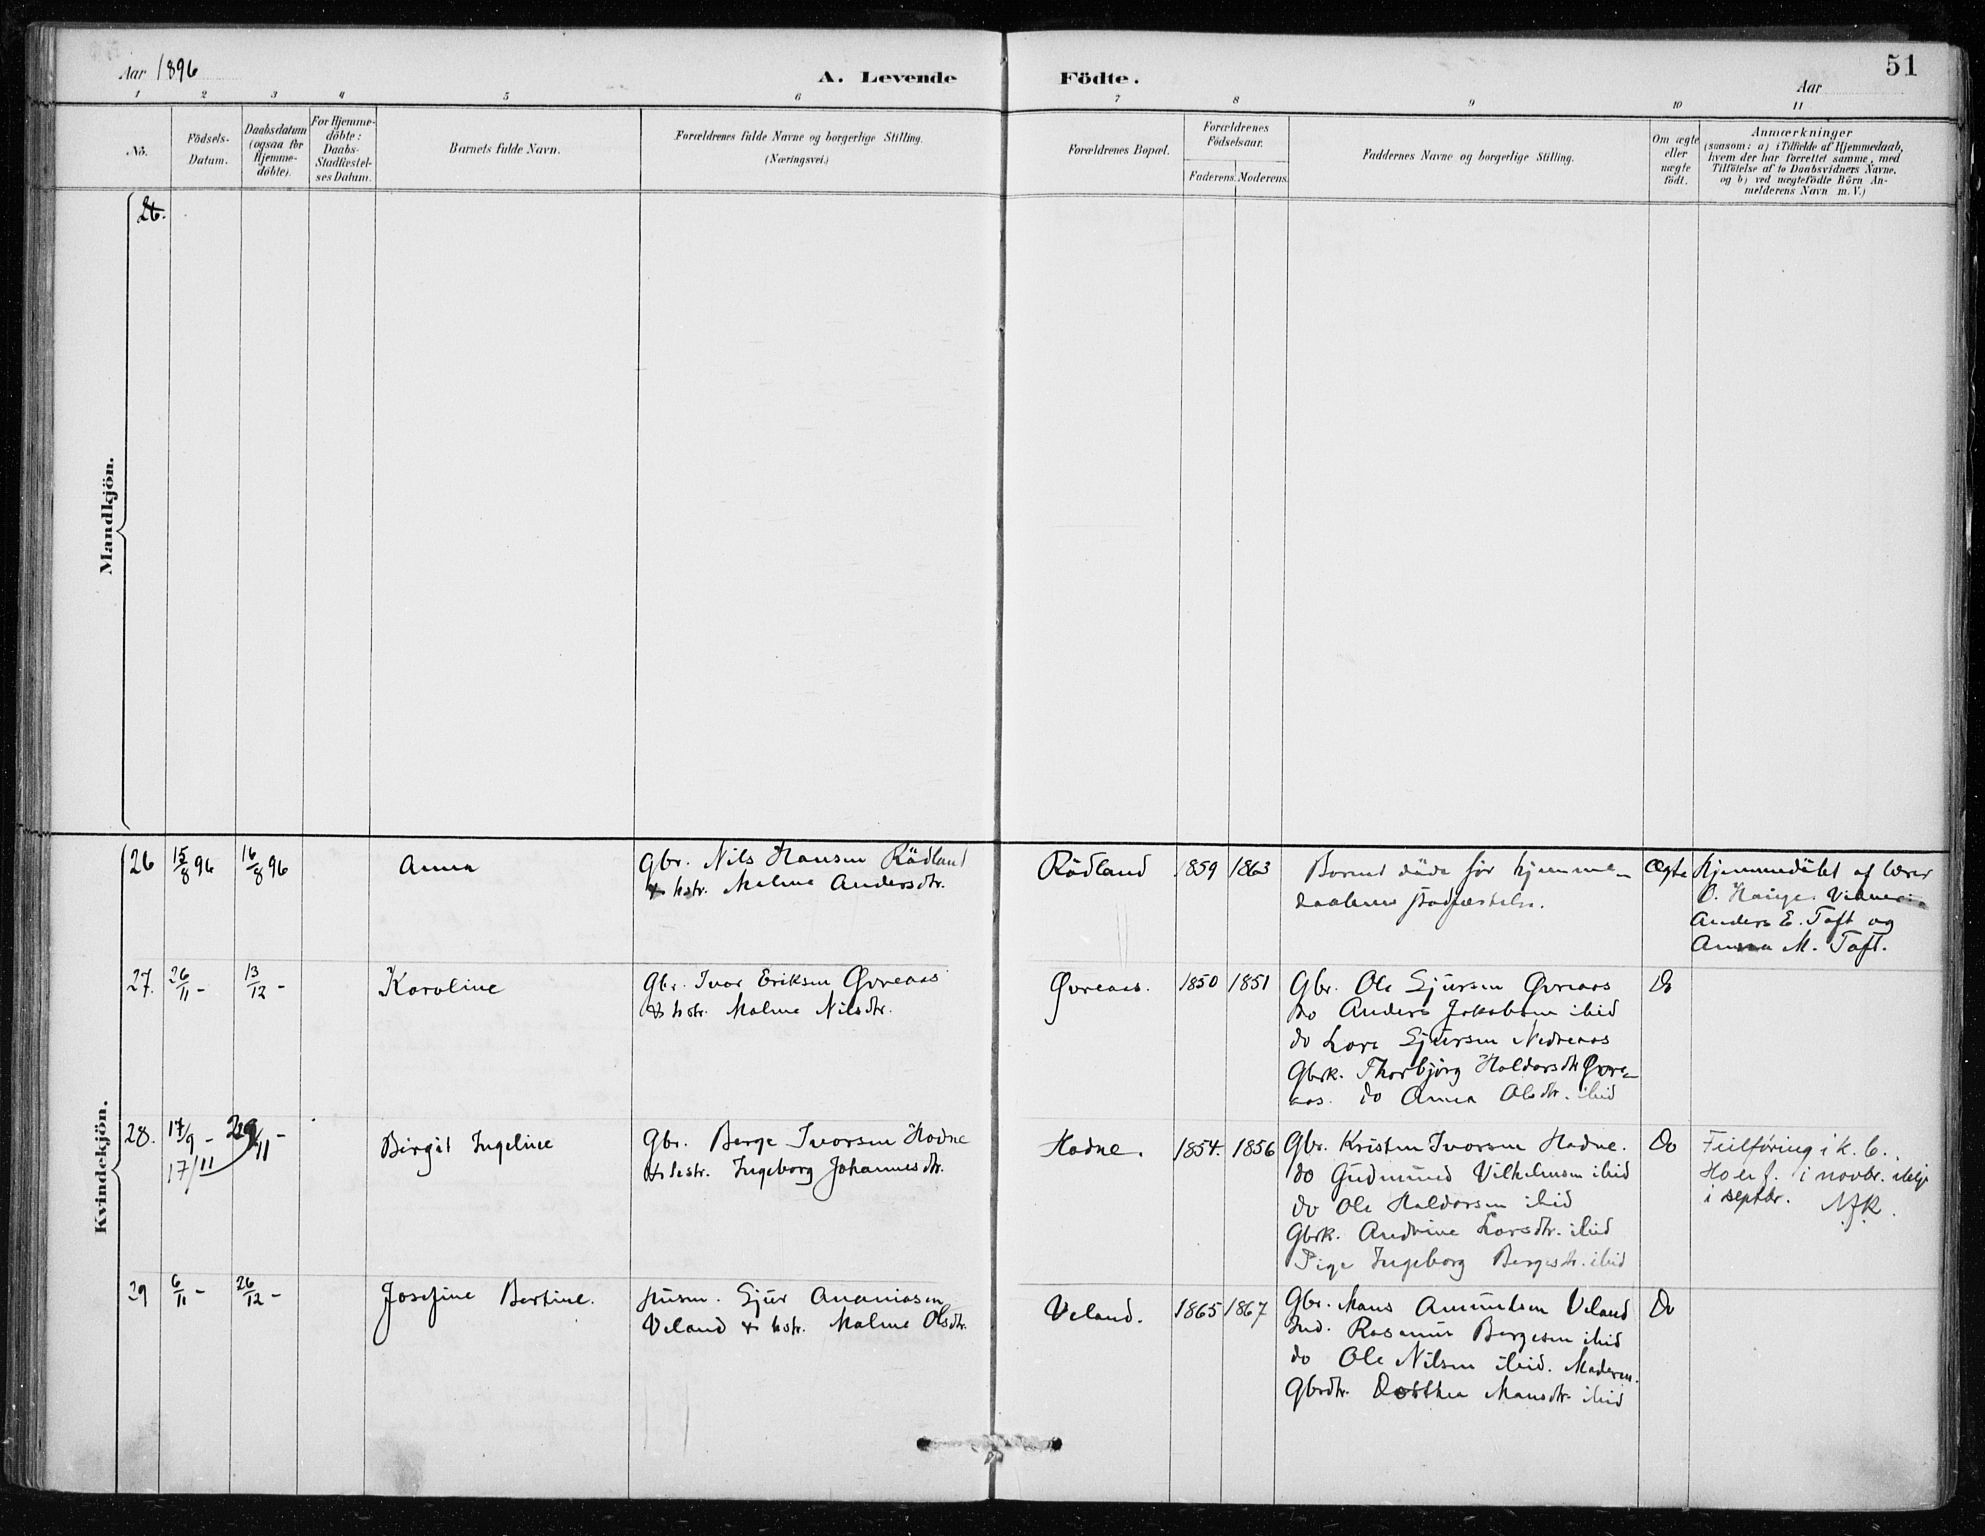 Aar 1896
A. Levende Födte.
51
Aar
1 2 3 4 5 6 7 8 9 10 11
No.
Födsels-
Datum.
Daabsdatum
(ogsaa for
Hjemme-
döbte).
For Hjemme-
döbte:
Daabs-
Stadfæstel-
ses Datum.
Barnets fulde Navn.
Forældrenes fulde Navne og borgerlige Stilling.
(Næringsvei.)
Forældrenes Bopæl.
Forældrenes
Födselsaar.
Faderens. Moderens.
Faddernes Navne og borgerlige Stilling.
Om ægte
eller
uægte
födt.
Anmærkninger
(saasom: a) i Tilfælde af Hjemmedaab,
hvem der har forrettet samme, med
Tilföielse af to Daabsvidners Navne.
og b) ved uægtefödte Börn An-
melderens Navn m. V.)
Mandkjön.
26.
Kvindekjön.
26
15/8 96
16/8 96
Anna
Gbr. Nils Hansen Rödland
& hstr. Malene Andersdtr.
Rödland
1859
1863
Barnet döde för hjemme-
daabens stadfæstelse.
Ægte
Hjemmedöbt af lærer
O. Hauge. Vidner:
Anders E. Toft og
Anna M. Toft.
27.
26/11 -
13/12 -
Karoline
Gbr. Ivar Eriksen Øvreaas
& hstr. Malene Nilsdtr.
Øvreaas.
1850
1851
Gbr. Ole Sjursen Øvreaas
do Anders Jakobsen ibid
do Lars Sjursen Nedreaas
Gbrk. Thorbjørg Haldorsdtr Øvre-
aas. do Anna Olsdtr. ibid
Do
28.
17/9 -
17/11
29/11 -
Birgit Ingeline
Gbr. Berge Ivarsen Hodne
& hstr. Ingeborg Johannesdtr.
Hodne.
1854.
1856
Gbr. Kristen Ivarsen Hodne.
do Gudmund Vilhelmsen ibid
do Ole Haldorsen ibid
Gbrk. Andrine Larsdtr. ibid
Pige Ingeborg Bergesdtr. ibid
Do
Feilføring i k. b.
Ho er f. i novbr. ikkje
i septbr. NfR.
29
6/11 -
26/12 -
Josefine Bertine.
Husm. Sjur Ananiasen
Veland & hstr. Malene Olsdtr.
Veland.
1865
1867
Gbr. Mons Amundsen Veland
Ind. Rasmus Bergesen ibid
do Ole Nilsen ibid. Moderen.
Gbrdtr. Dorthea Monsdtr. ibid
Do